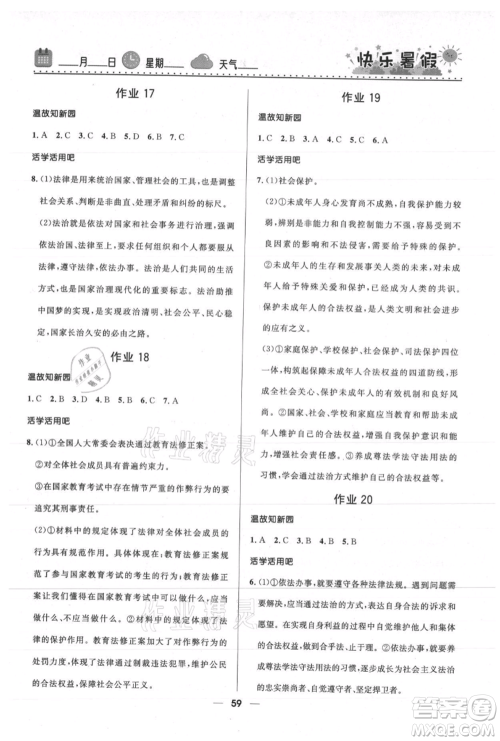 ___月___日 星期___ 天气___ 快乐暑假
作业 17
温故知新园
1. A 2. C 3. B 4. D 5. B 6. C 7. A
活学活用吧
8. (1)法律是用来统治国家、管理社会的工具,具有调整社会关系、判断是非曲直、处理矛盾和纠纷的功能。
(2)法治就是依法对国家和社会事务进行治理,强调依法治国、法律至上,要求任何组织和个人都要服从法律,遵守法律,依法办事。
(3)法治是人们共同的生活方式。法治是社会进步的重要标志。法治助推中国梦的实现,是实现政治清明、社会公平、民心稳定、国家长治久安的必由之路。
作业 18
温故知新园
1. B 2. D 3. C 4. D 5. C 6. A 7. C
活学活用吧
8. (1)①全国人大常委会表决通过了教育法修正案。
②对全体社会成员具有普遍约束力。
③在国家教育考试中存在情节严重的作弊行为的将被追究其刑事责任。
(2)①材料中的规定体现了法律对全体社会成员具有规范作用。教育法修正案规范了教育考试机构以及参加国家教育考试的考生的行为,教育法修正案让人们知道自己可以做什么、应当做什么,不应当做什么。②材料中的规定体现了法律对全体社会成员具有保护作用。教育法修正案规定了人们享有的权利、应该履行的义务,教育法修正案通过制裁违法犯罪,惩恶扬善、伸张正义,维护了人们的合法权益。
作业 19
温故知新园
1. C 2. C 3. C 4. B 5. B 6. A
活学活用吧
7. (1)社会保护。
(2)①未成年人身心发育尚不成熟,自我保护能力较弱,辨别是非能力和自我控制能力不强,容易受到不良因素的影响和不法侵害,需要给予特殊的保护。②未成年人的生存和发展事关人类的未来,对未成年人给予特殊关爱和保护,已经成为人类的共识。
(3)①家庭保护、学校保护、社会保护、司法保护一起构筑起保护未成年人合法权益的四道防线,体现了全社会共同的关心和爱护。②家庭、学校、社会和司法都应积极承担起保护未成年人合法权益的责任。③未成年人要珍惜自己的权利,依法行使权利,以合法的方式维护自己的合法权益,自觉尊法学法守法用法。
作业 20
温故知新园
1. A 2. B 3. B 4. A 5. B
活学活用吧
6. (1)①依法办事,就要遵守各种法律法规。②养成遇事找法、解决问题靠法的思维习惯和行为方式。③树立法治意识,表现为对法律发自内心的认可、崇尚、遵守和服从。④学会运用法治思维和法治方式维护自身权利,在表达自身合法的诉求和愿望、维护自身合法权益的过程中自觉维护法律权威和秩序,心系社会,胸怀国家。⑤不断增强尊法学法守法用法的意识,努力成为社会主义法治的忠实崇尚者、自觉遵守者、坚定捍卫者。
59
作业精灵
答案圈